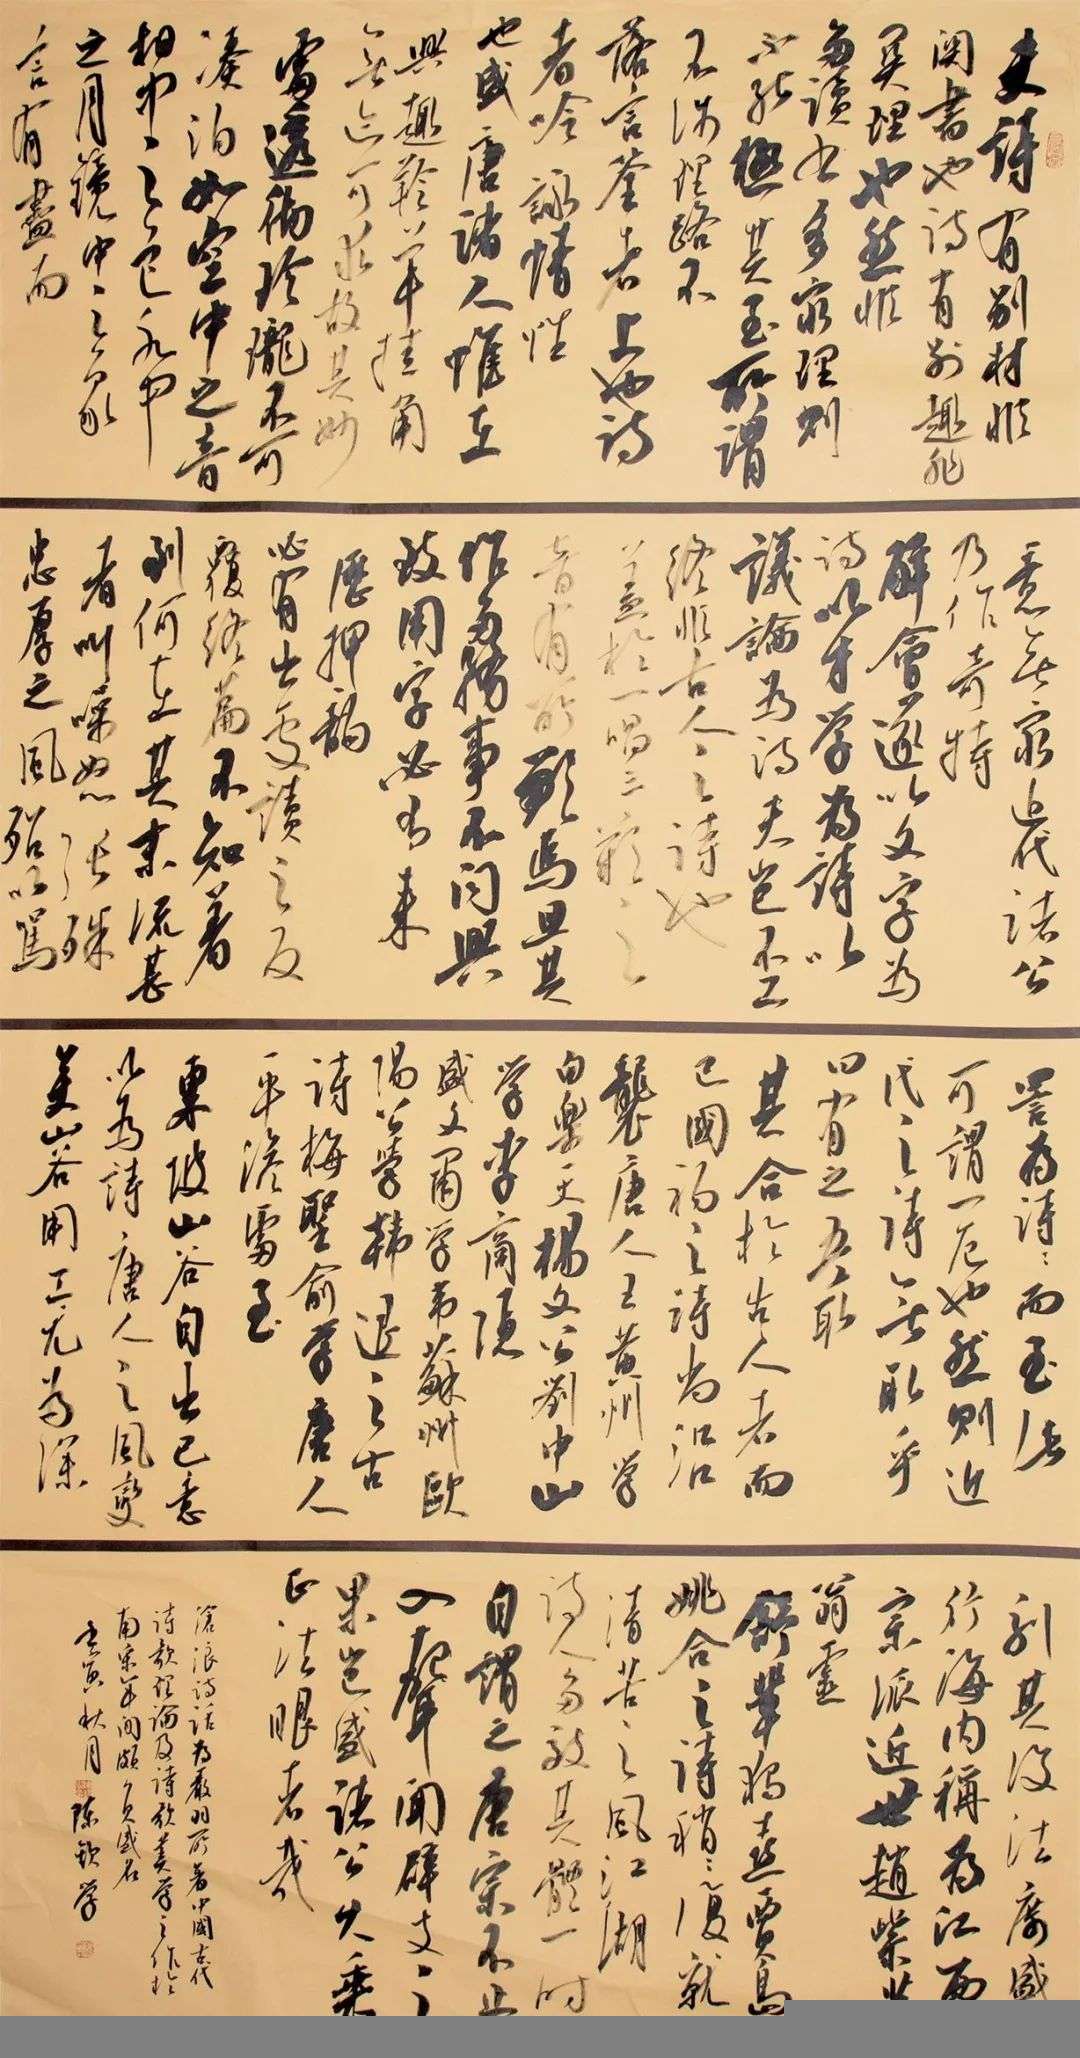 夫詩有别材非
関書也詩有别趣非
関理也然非
多讀书多窮理則
不能極其至所謂
不涉理路不
落言筌者上也詩
者吟詠情性
也盛唐諸人惟在
興趣羚羊挂角
無迹可求故其妙
處透徹玲瓏不可
湊泊如空中之音
相中之色水中
之月鏡中之象
言有盡而
意無窮近代諸公
乃作奇特
解會遂以文字為
詩以才學為詩以
議論為詩夫豈不工
終非古人之詩也
蓋於一唱三歎之
音有所歉焉且其
作多務事不問興
致用字必有来
歷押韻
必有出處讀之反
覆終篇不知着
到何在其末流甚
者叫噪怒張殊
忠厚之風殆以罵
詈為詩詩而至此
可謂一厄也然則近
代之詩無取乎
曰有之吾取
其合於古人者而
已國初之詩尚沿
襲唐人王黄州學
白樂天楊文公劉中山
學李商隐
盛文肅學韦蘇州歐
陽公學韓退之古
詩梅聖俞學唐人
平澹處至
東坡山谷自出己意
以為詩唐人之風變
矣山谷用工尤為深
刻其後法席盛
行海内稱為江西
宗派近世趙紫芝
翁靈
舒輩獨喜賈島
姚合之詩稍稍復就
清苦之風江湖
詩人多效其體一时
自謂之唐宗不止
入聲聞辟支之
果豈盛諸公大乘
正法眼者哉
滄浪詩話為嚴羽所著中國古代
詩歌理論及詩歌美學之作於
南宋年间頗负盛名
壬寅秋月 陈欽学